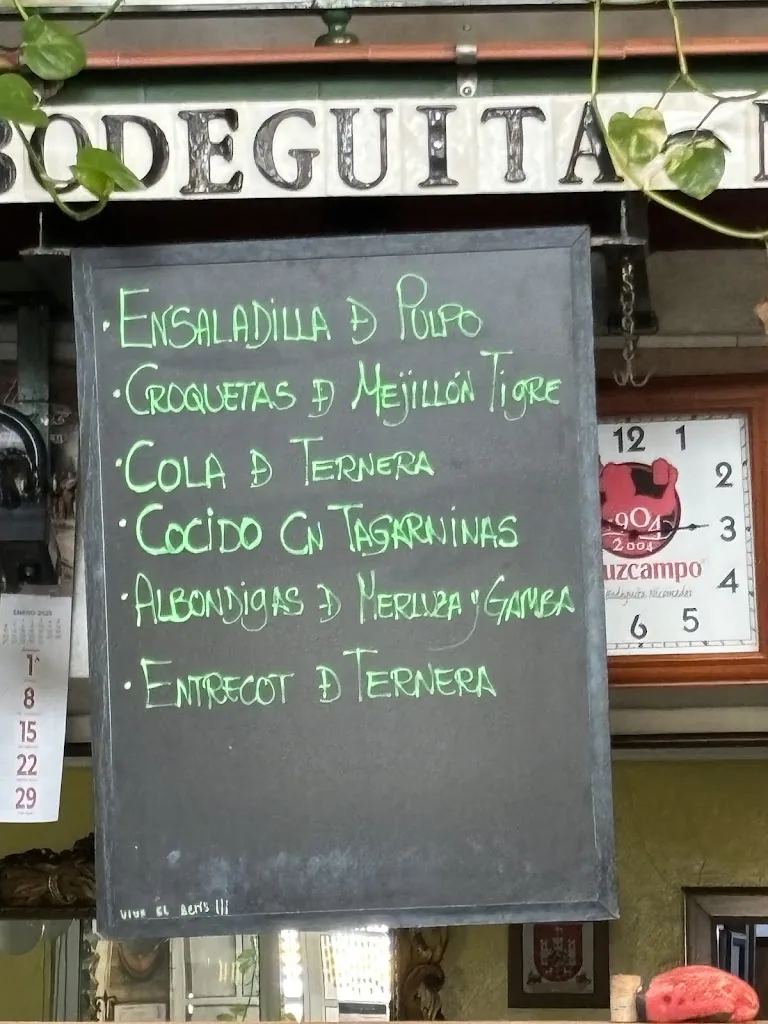 BODEGUITA
· ENSALADILLA D PULPO
· CROQUETAS D MEJILLÓN TIGRE
· COLA D TERNERA
· COCIDO CN TAGARNINAS
· ALBONDIGAS D MERLUZA y GAMBA
· ENTRECOT D TERNERA
VIVA EL BETIS !!!
12 1
2
3
4
5
6
1904
2004
uzcampo
Bodeguita Nicomedes
ENERO
1ª
8
15
22
29